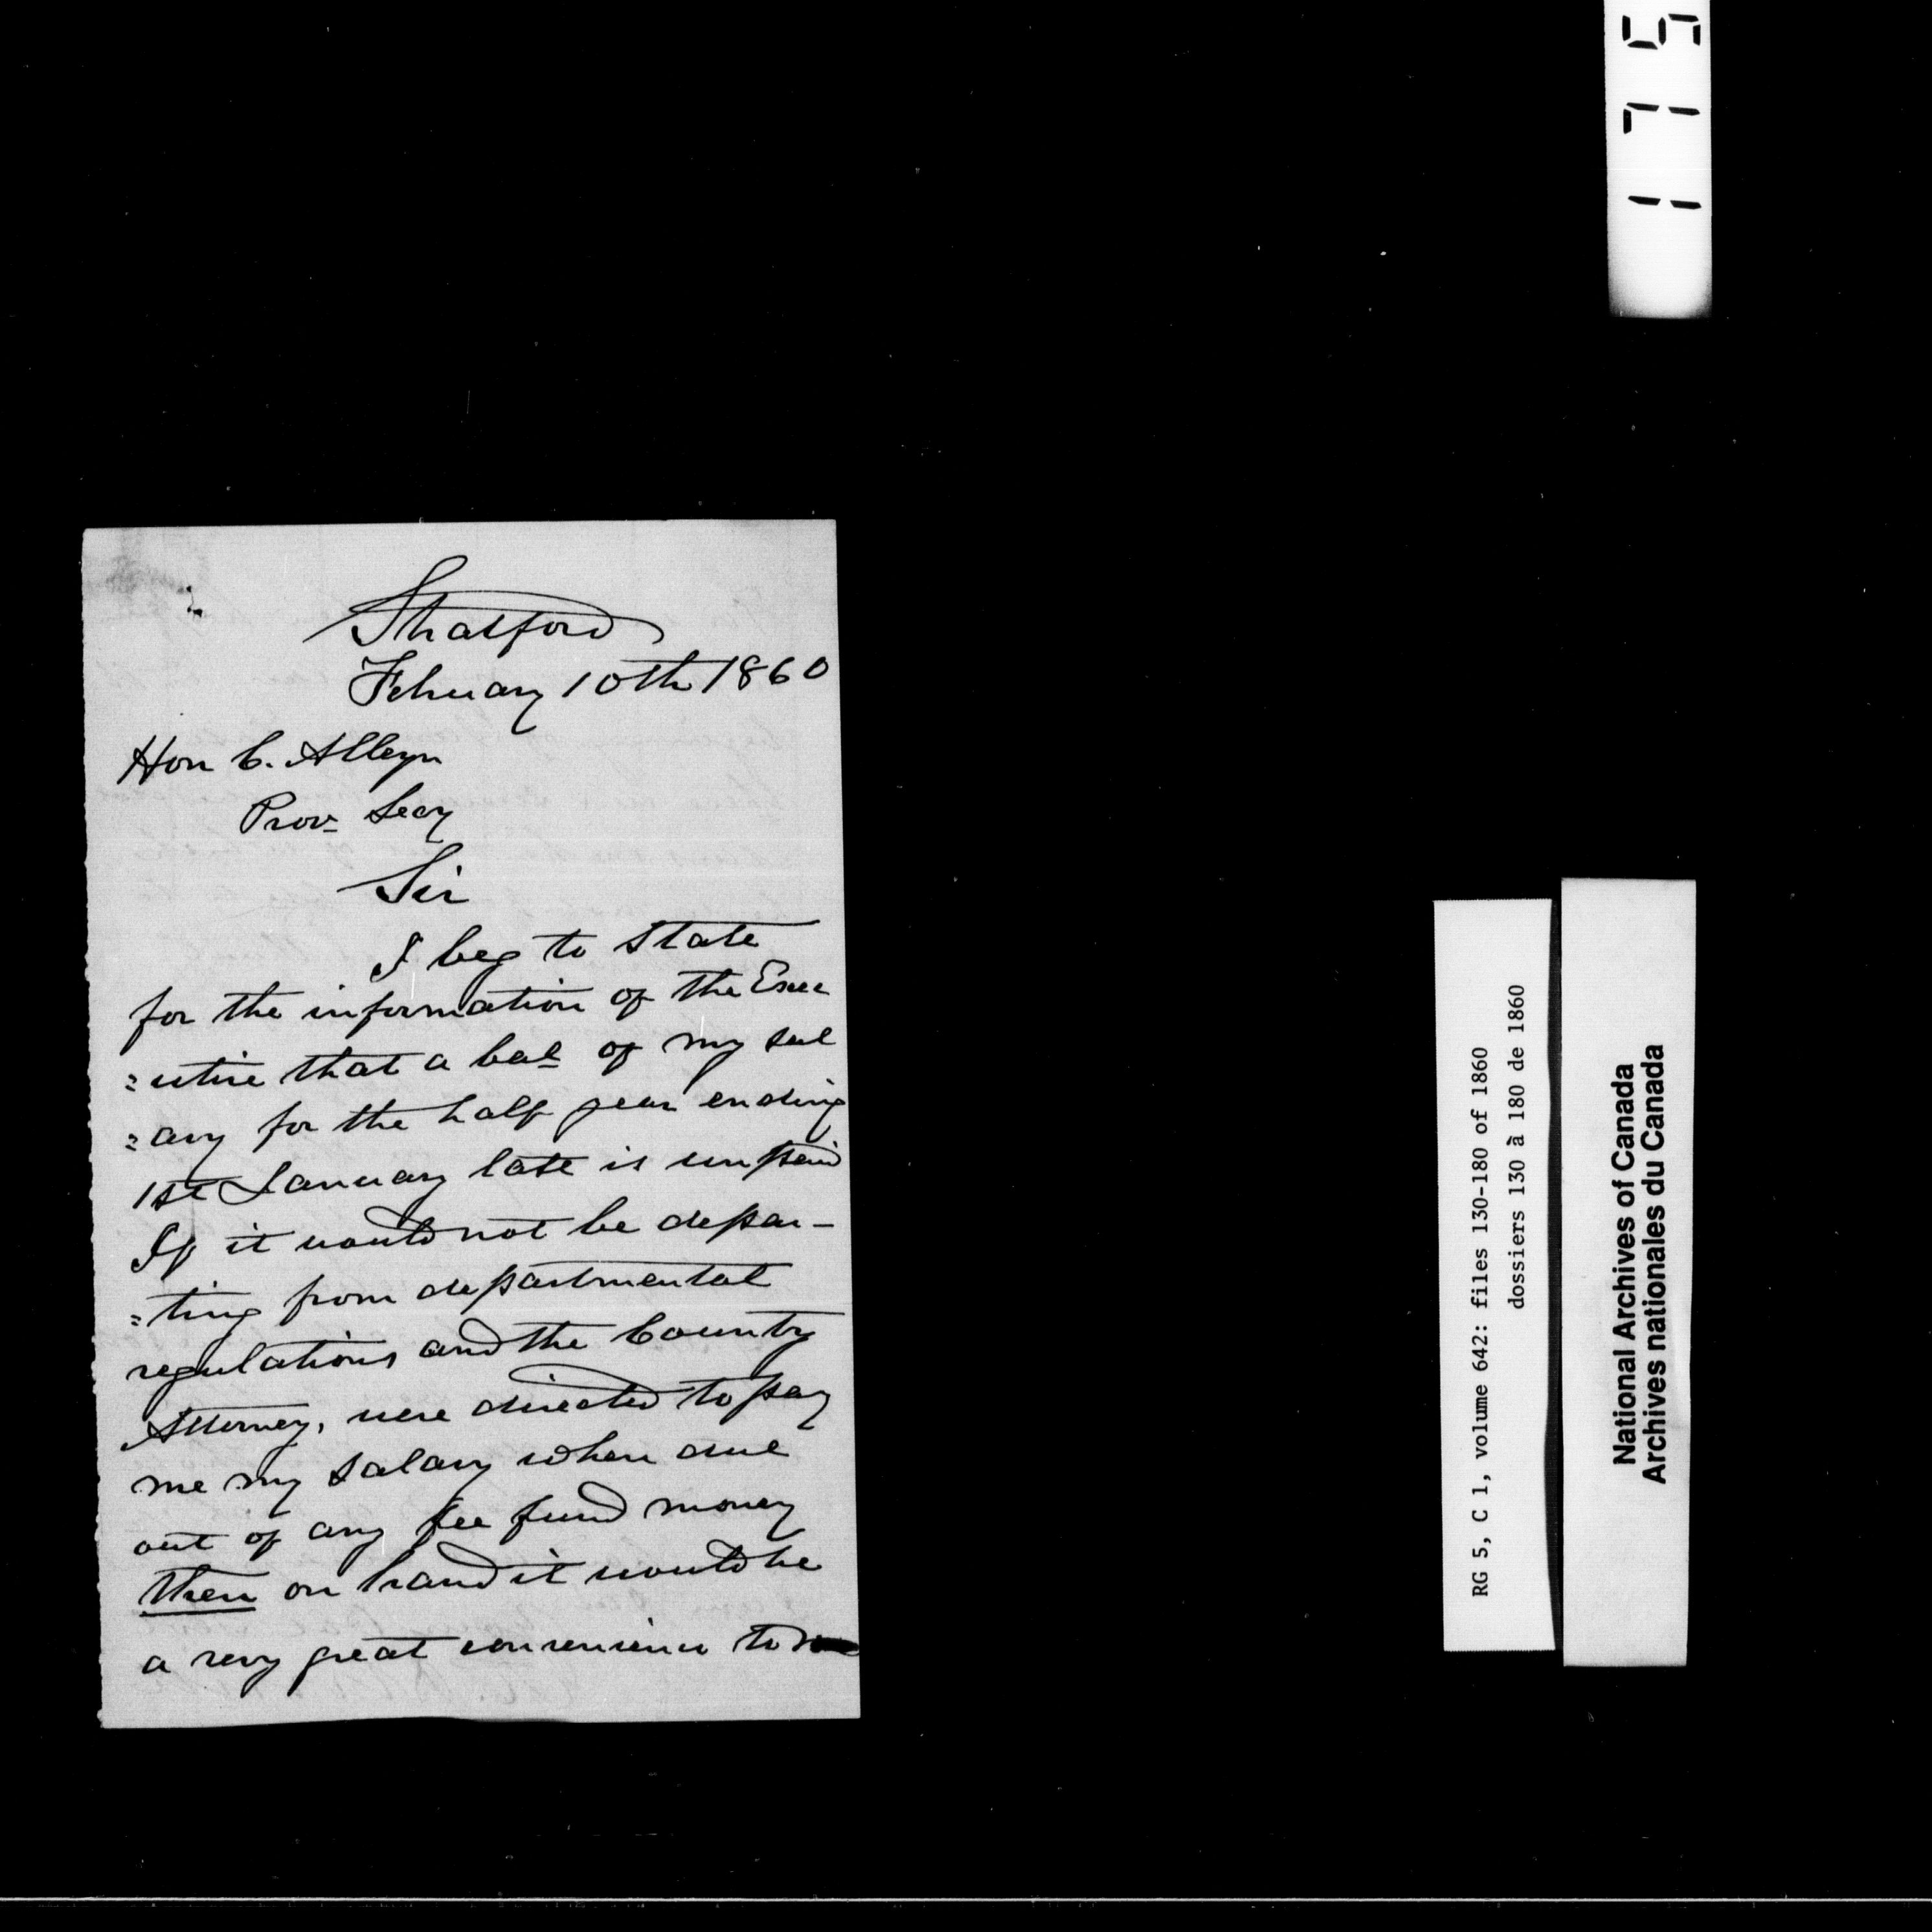 Stratford
February 10th 1860
Hon C. Alleyn
Prov. Secy
Sir
I beg to state
for the information of the Exec
=utive that a bal of my sal
=ary for the half year ending
1st January late is unpaid
If it would not be depar-
=ting from departmental
regulations and the County
Attorney, were directed to pay
me my salary when due
out of any fee fund money
then on hand it would be
a very great convenience to
RG 5, C 1, volume 642: files 130-180 of 1860
dossiers 130 à 180 de 1860
National Archives of Canada
Archives nationales du Canada